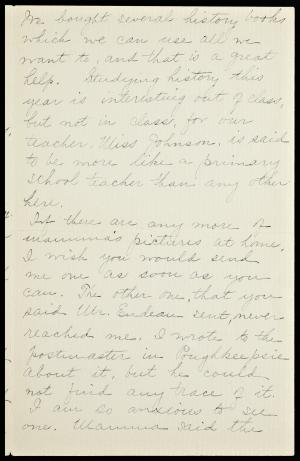 We bought several history books
which we can use all we
want to, and that is a great
help. Studying history this
year is interesting out of class,
but not in class, for our
teacher, Miss Johnson, is said
to be more like a primary
school teacher than any other
here.
If there are any more of
mamma's pictures at home,
I wish you would send
me one as soon as you
can. The other one, that you
said Mr. Endeau sent, never
reached me. I wrote to the
postmaster in Poughkeepsie
about it, but he could
not find any trace of it.
I am so anxious to see
one. Mamma said the